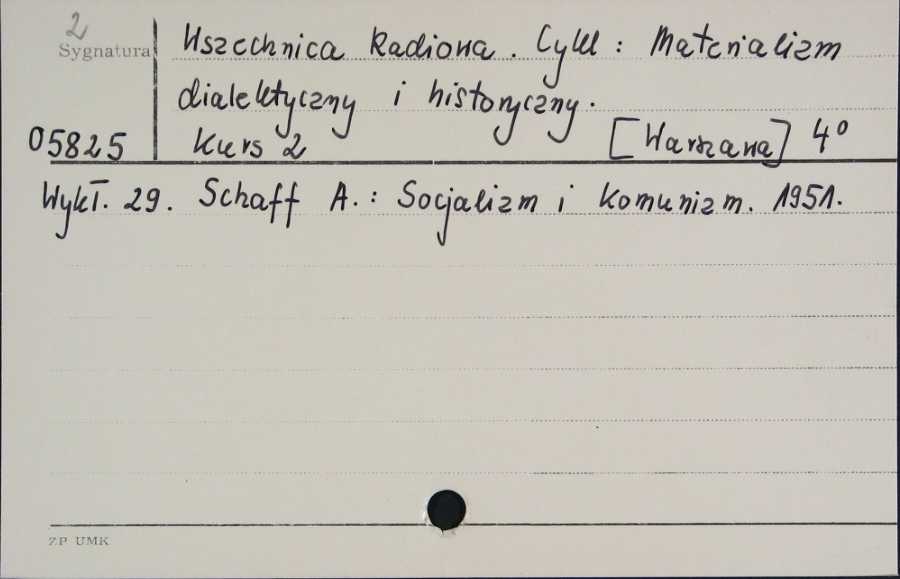 2
Sygnatura
Wszechnica Radiowa. Cykl: Materializm
dialektyczny i historyczny.
05825
Kurs 2 [Warszawa] 4°
Wykł. 29. Schaff A.: Socjalizm i Komunizm. 1951.
ZP UMK